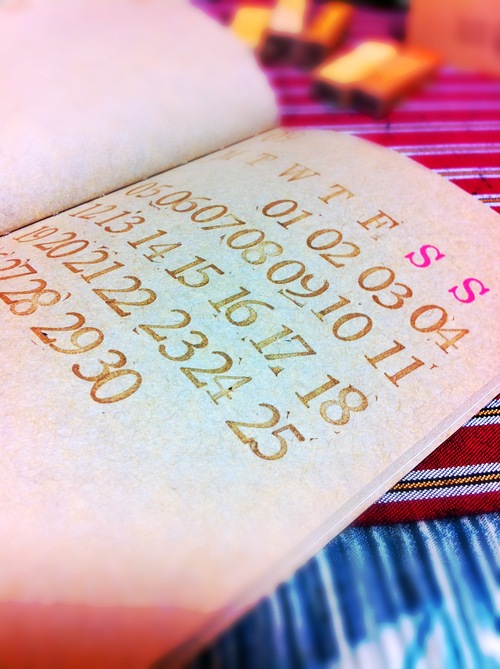 T W T F S S
01 02 03 04
05 06 07 08 09 10 11
12 13 14 15 16 17 18
19 20 21 22 23 24 25
27 28 29 30